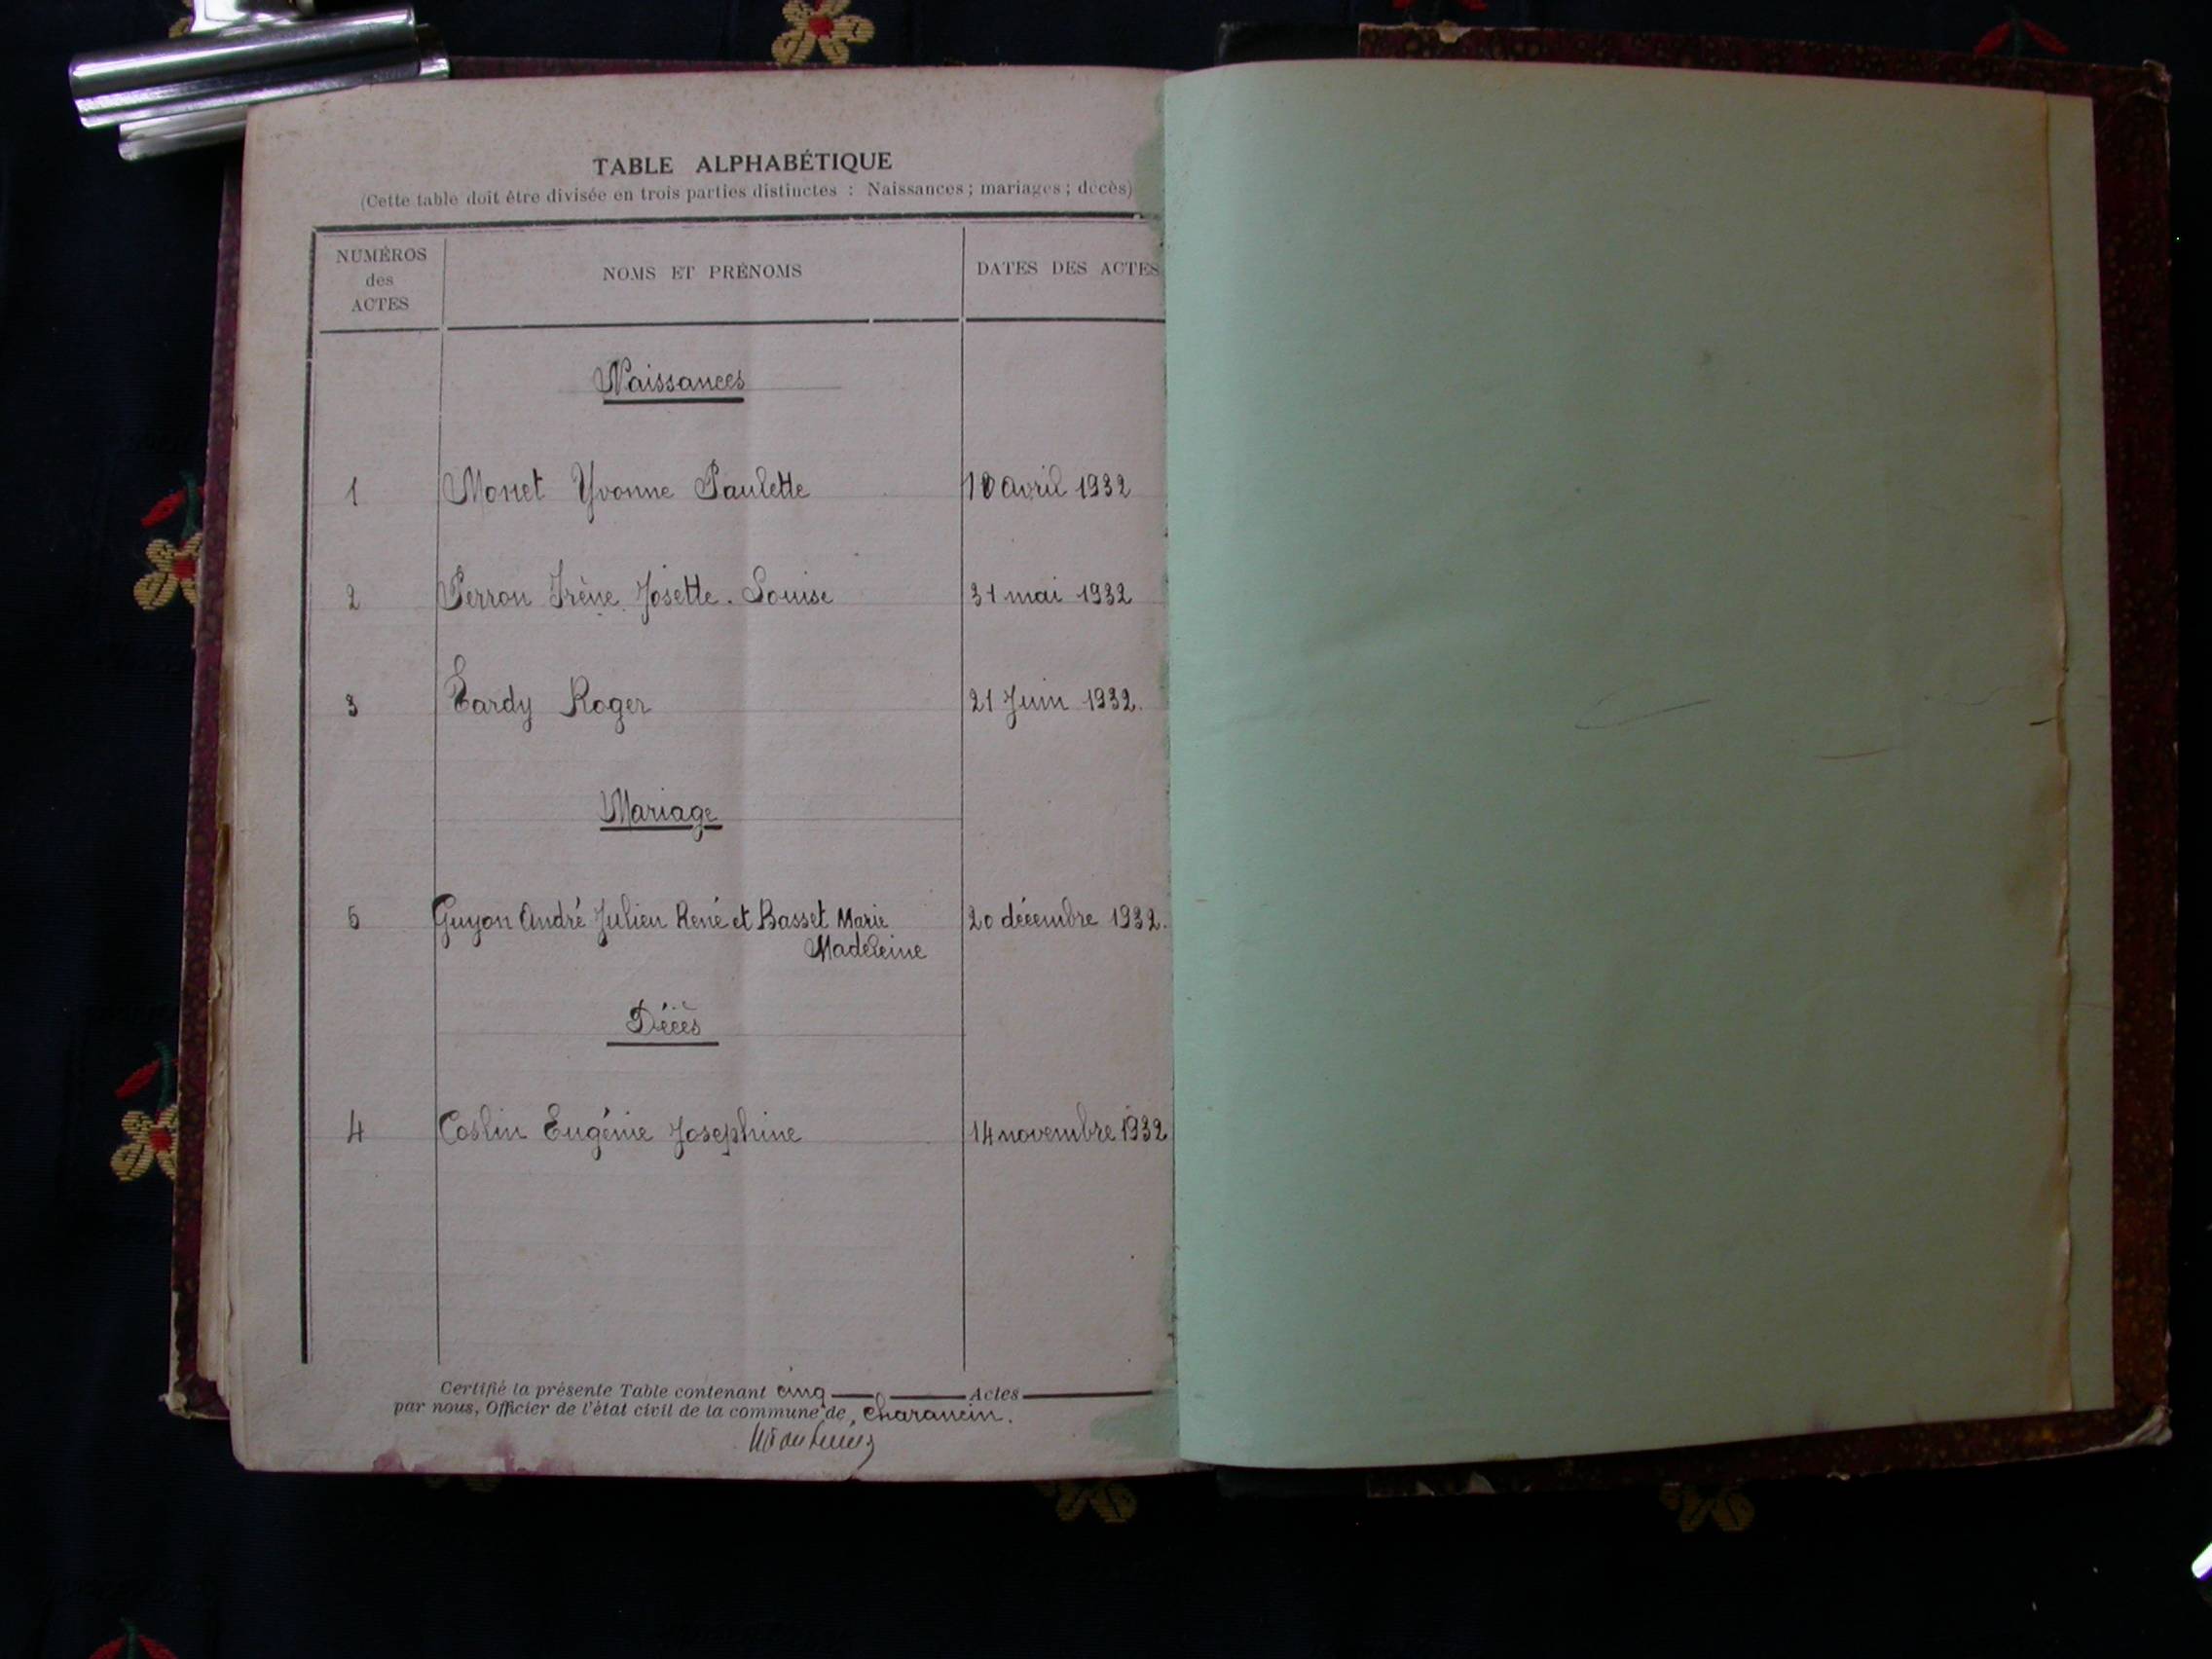 TABLE ALPHABÉTIQUE
(Cette table doit être divisée en trois parties distinctes : Naissances ; mariages ; décès)
NUMÉROS
des
ACTES
NOMS ET PRÉNOMS
DATES DES ACTES
Naissances
1 Monet Yvonne Paulette 10 avril 1932
2 Perron Irène Josette. Louise 31 mai 1932
3 Tardy Roger 21 Juin 1932.
Mariage
5 Guyon André Julien René et Basset Marie 20 décembre 1932.
Madeleine
Décès
4 Coslin Eugénie Josephine 14 novembre 1932
Certifié la présente Table contenant cinq Actes
par nous, Officier de l'état civil de la commune de Charancin.